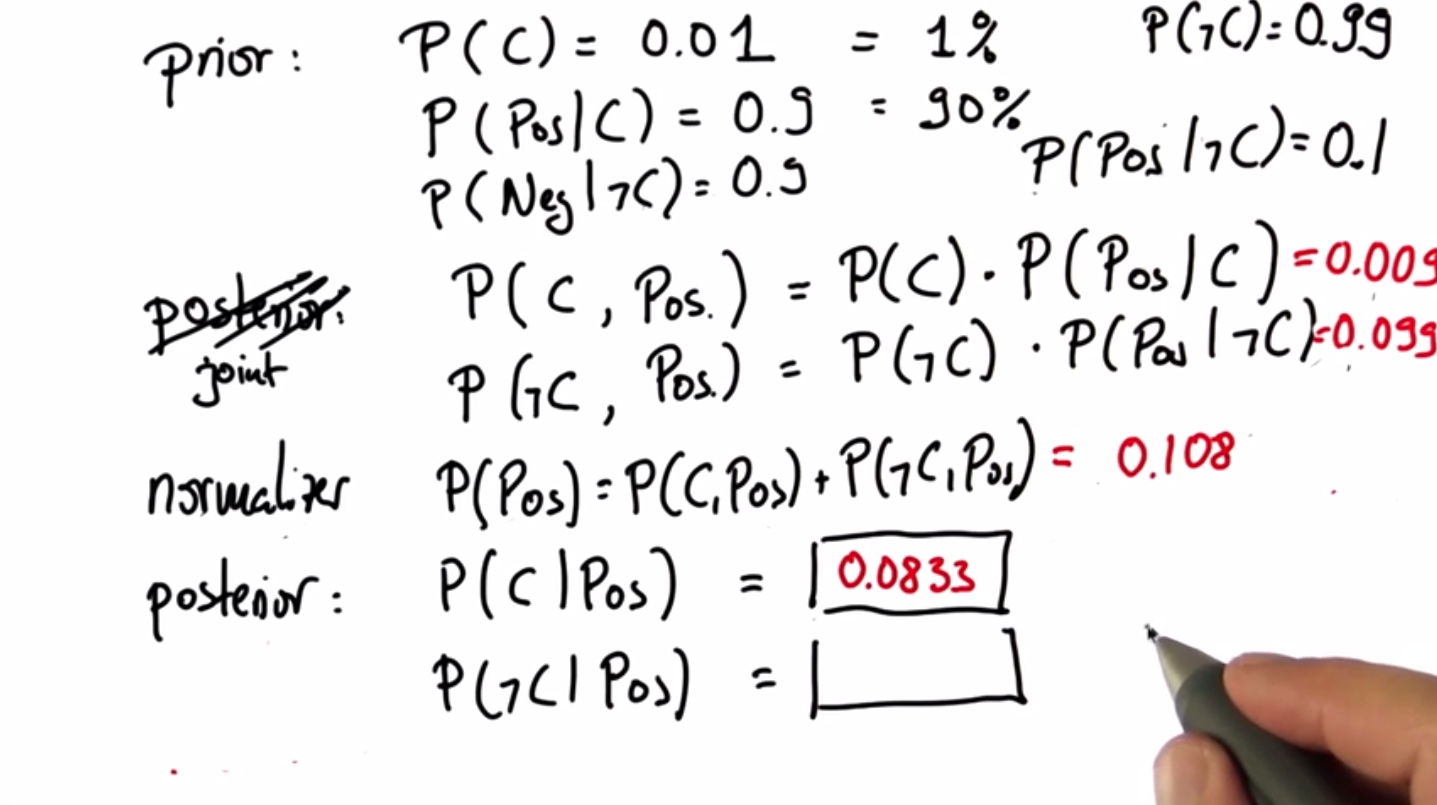 prior: P(C) = 0.01 = 1% P(¬C)=0.99
P(Pos|C) = 0.9 = 90%
P(Pos|¬C)=0.1
P(Neg|¬C)=0.9
posterior: P(C, Pos.) = P(C)·P(Pos|C) =0.009
joint P(¬C, Pos.) = P(¬C)·P(Pos|¬C)=0.099
normalizer P(Pos)=P(C,Pos)+P(¬C,Pos)= 0.108
posterior: P(C|Pos) = 0.0833
P(¬C|Pos) =